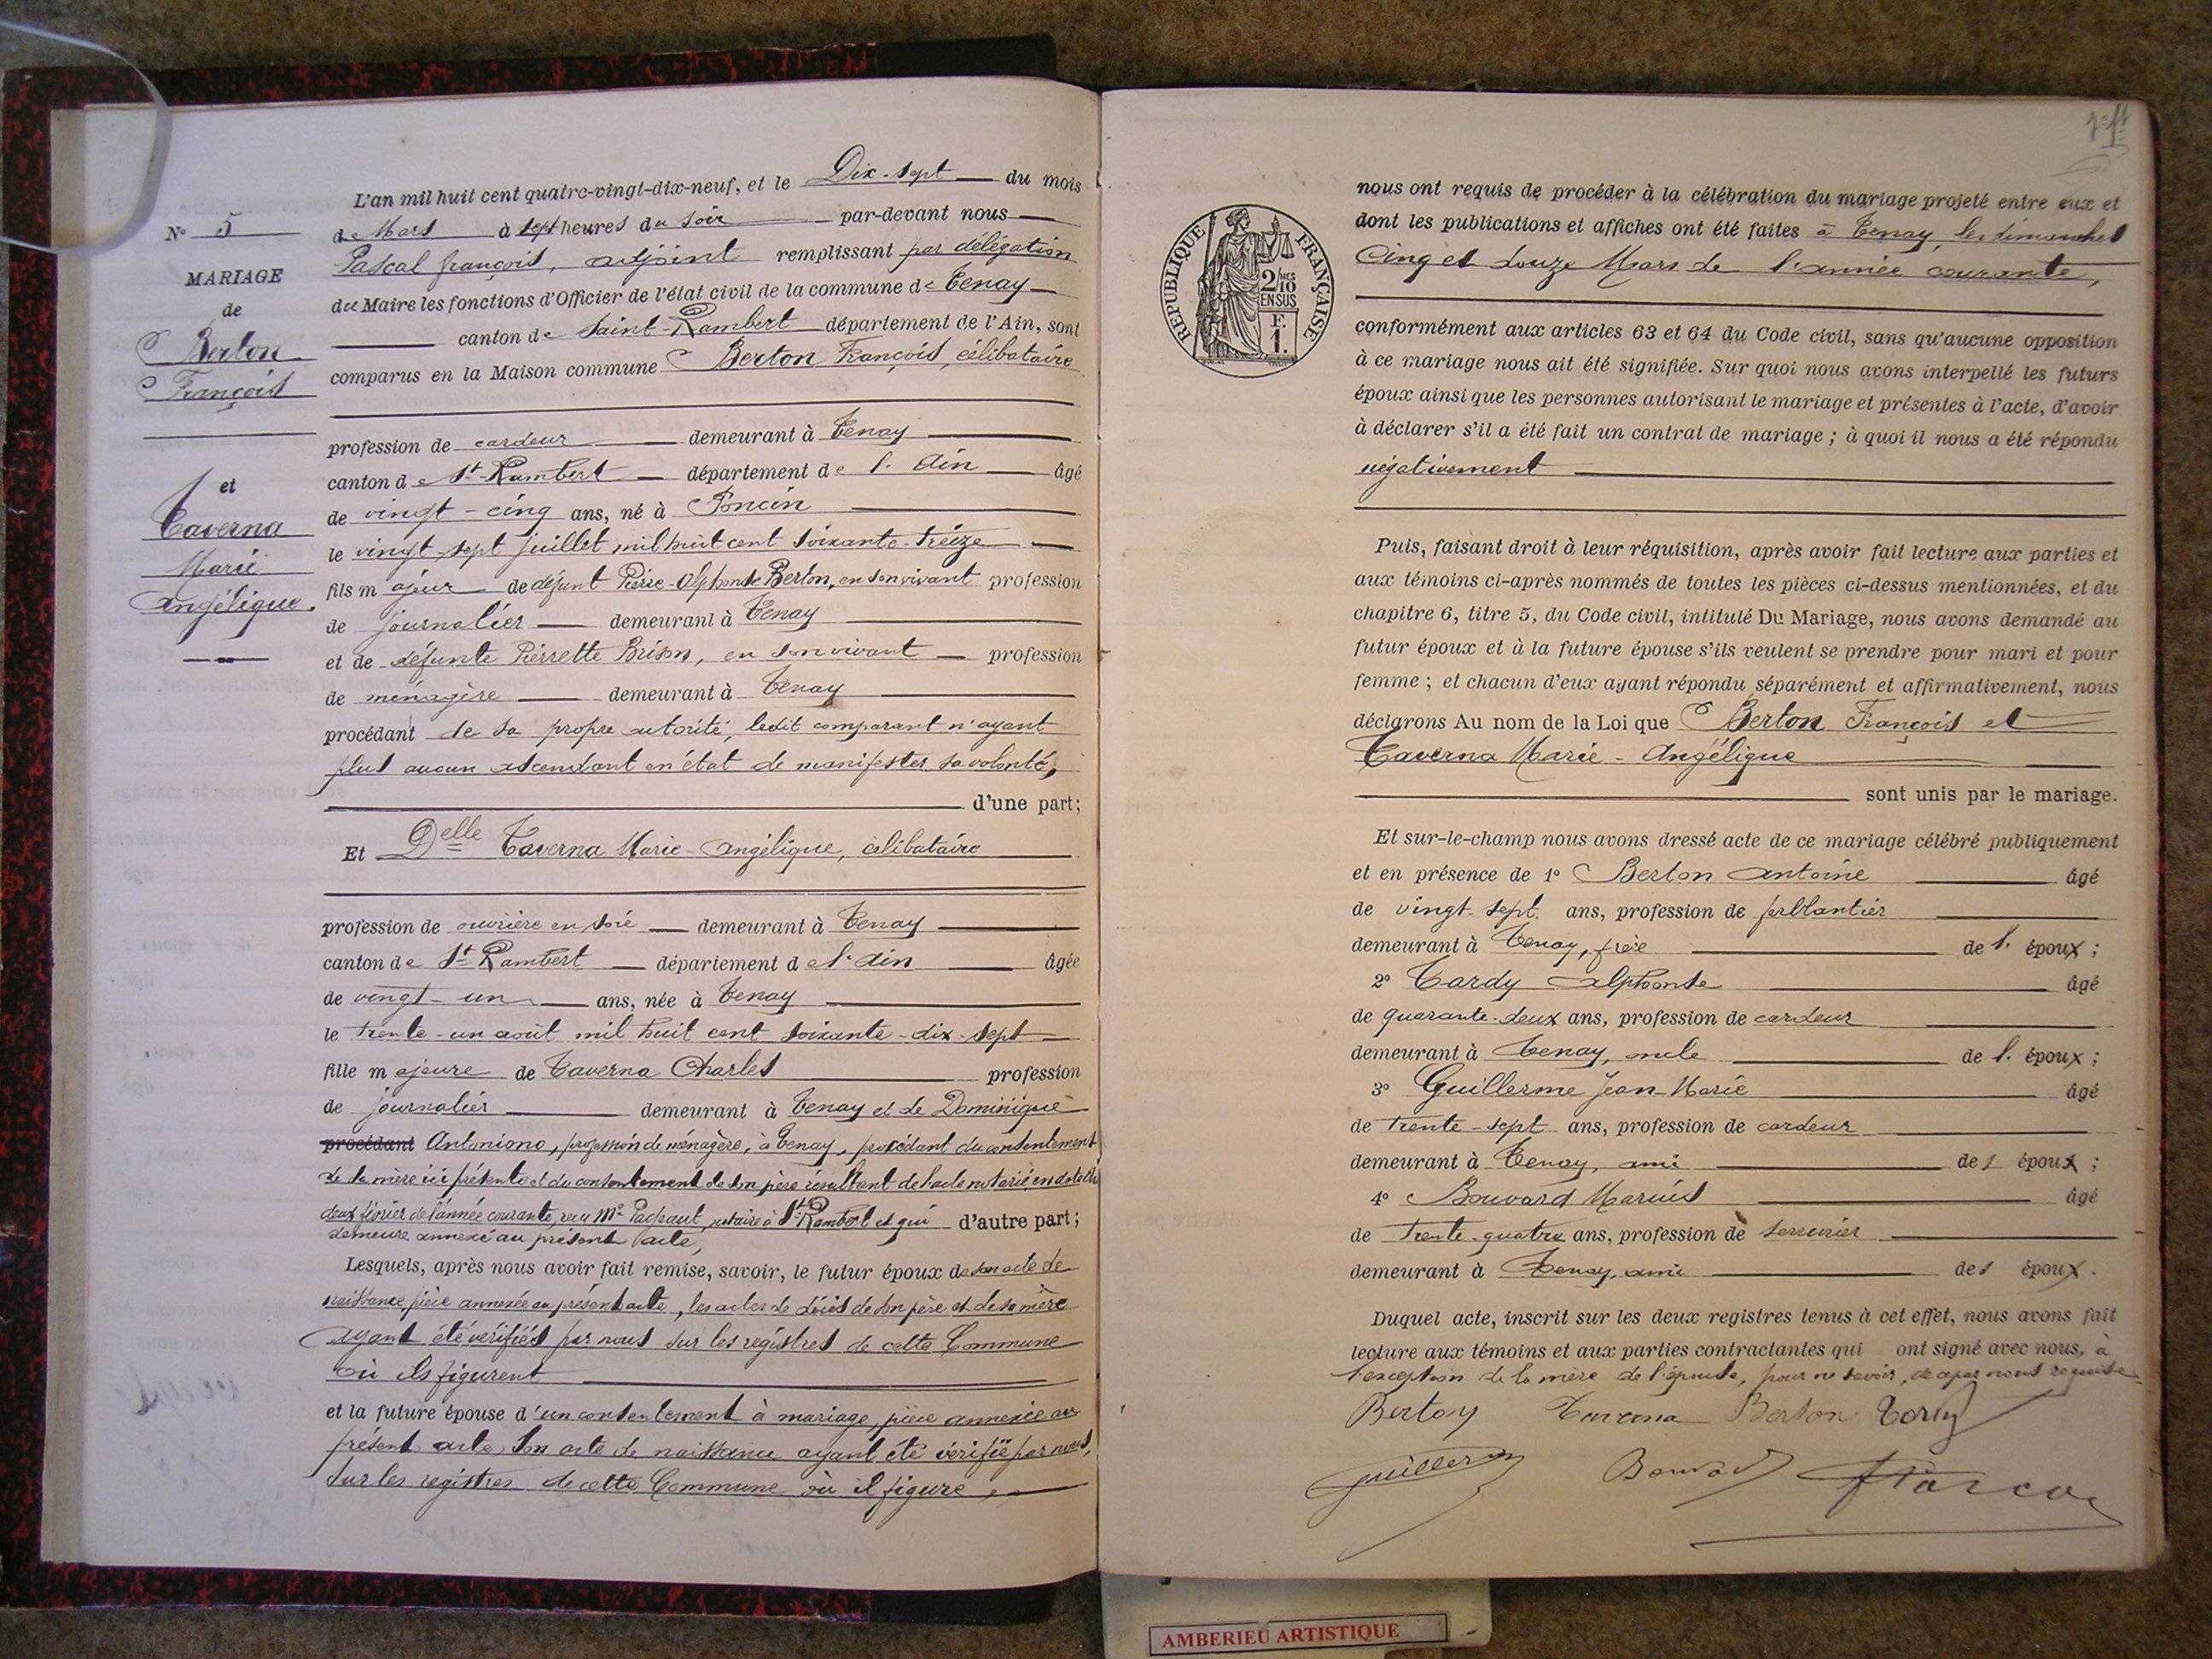 N° 5
MARIAGE
de
Berton
François
et
Taverna
Marie
Angélique.
L'an mil huit cent quatre-vingt-dix-neuf, et le Dix-sept du mois
de Mars à sept heures du soir par-devant nous
Pascal françois, adjoint remplissant par délégation
du Maire les fonctions d'Officier de l'état civil de la commune de Tenay
canton de Saint-Rambert département de l'Ain, sont
comparus en la Maison commune Berton François, célibataire
profession de cardeur demeurant à Tenay
canton de St-Rambert département de l'Ain âgé
de vingt-cinq ans, né à Poncin
le vingt-sept juillet mil huit cent soixante-treize
fils majeur de défunt Pierre-Alphonse Berton, en son vivant profession
de journalier demeurant à Tenay
et de défunte Pierrette Brison, en son vivant profession
de ménagère demeurant à Tenay
procédant de sa propre autorité, ledit comparant n'ayant
plus aucun ascendant en état de manifester sa volonté,
d'une part;
Et Delle Taverna Marie-Angélique, célibataire
profession de ouvrière en soie demeurant à Tenay
canton de St Rambert département de l'Ain âgée
de vingt-un ans, née à Tenay
le trente-un août mil huit cent soixante-dix-sept
fille majeure de Taverna Charles profession
de journalier demeurant à Tenay et de Dominique
procédant Antoniono, profession de ménagère, à Tenay, procédant du consentement
de sa mère ici présente et du consentement de son père résultant de l'acte notarié en date du
deux février de l'année courante, reçu Me notaire à St Rambert et qui d'autre part;
demeure annexé au présent acte,
Lesquels, après nous avoir fait remise, savoir, le futur époux de son acte de
naissance, pièce annexée au présent acte, les actes de décès de son père et de sa mère
ayant été vérifiés par nous sur les registres de cette Commune
où ils figurent
et la future épouse d'un consentement à mariage, pièce annexée au
présent acte, son acte de naissance ayant été vérifié par nous,
sur les registres de cette Commune où il figure,
REPUBLIQUE FRANÇAISE
2/10 MES
EN SUS
F.
1.
nous ont requis de procéder à la célébration du mariage projeté entre eux et
dont les publications et affiches ont été faites à Tenay, les dimanches
Cinq et douze Mars de l'année courante,
conformément aux articles 63 et 64 du Code civil, sans qu'aucune opposition
à ce mariage nous ait été signifiée. Sur quoi nous avons interpellé les futurs
époux ainsi que les personnes autorisant le mariage et présentes à l'acte, d'avoir
à déclarer s'il a été fait un contrat de mariage; à quoi il nous a été répondu
négativement
Puis, faisant droit à leur réquisition, après avoir fait lecture aux parties et
aux témoins ci-après nommés de toutes les pièces ci-dessus mentionnées, et du
chapitre 6, titre 5, du Code civil, intitulé Du Mariage, nous avons demandé au
futur époux et à la future épouse s'ils veulent se prendre pour mari et pour
femme; et chacun d'eux ayant répondu séparément et affirmativement, nous
déclarons Au nom de la Loi que Berton François et
Taverna Marie-Angélique
sont unis par le mariage.
Et sur-le-champ nous avons dressé acte de ce mariage célébré publiquement
et en présence de 1° Berton Antoine âgé
de vingt-sept ans, profession de ferblantier
demeurant à Tenay, frère de l'époux;
2° Tardy Alphonse âgé
de quarante-deux ans, profession de cardeur
demeurant à Tenay, oncle de l'époux;
3° Guillerme Jean-Marie âgé
de trente-sept ans, profession de cardeur
demeurant à Tenay, ami des époux;
4° Bouvard Marius âgé
de trente-quatre ans, profession de serrurier
demeurant à Tenay, ami des époux.
Duquel acte, inscrit sur les deux registres tenus à cet effet, nous avons fait
lecture aux témoins et aux parties contractantes qui ont signé avec nous, à
l'exception de la mère de l'épouse, pour ne savoir, de ce par nous requise
Berton Taverna Berton Tardy
Guillerm Bouvard
AMBERIEU ARTISTIQUE